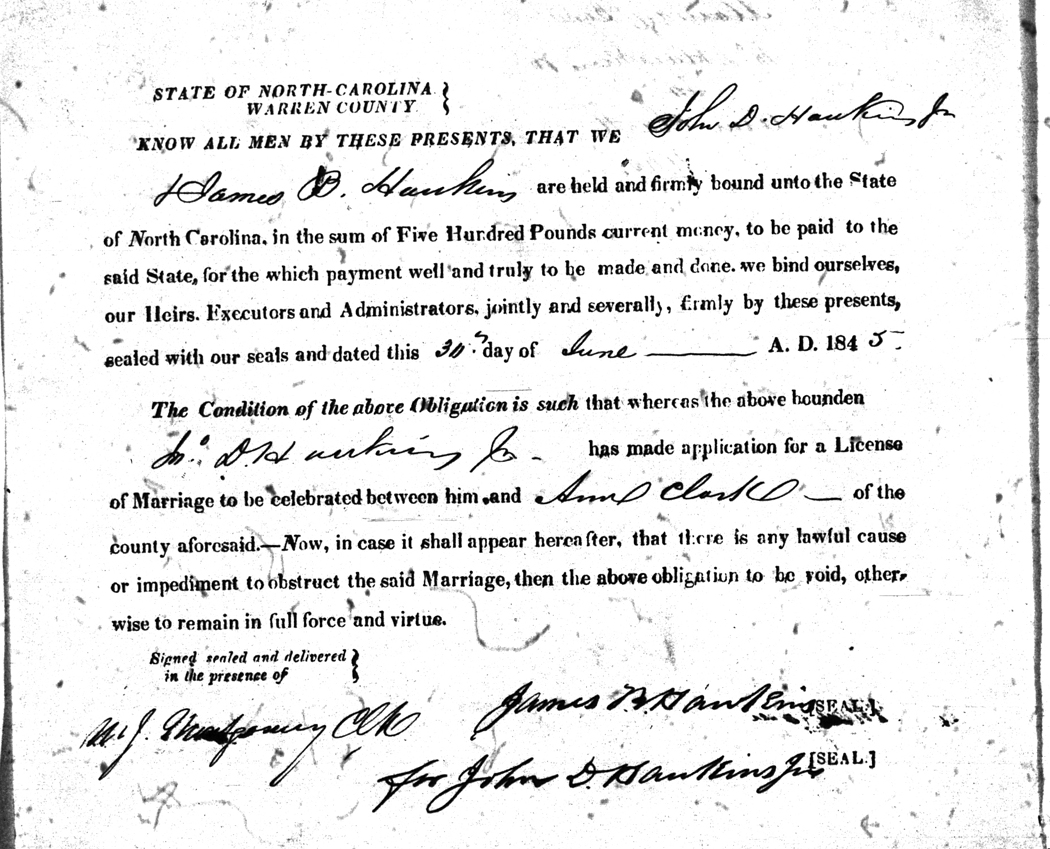 STATE OF NORTH-CAROLINA
WARREN COUNTY
KNOW ALL MEN BY THESE PRESENTS, THAT WE John D. Hawkins Jr
& James B. Hawkins are held and firmly bound unto the State
of North Carolina, in the sum of Five Hundred Pounds current money, to be paid to the
said State, for the which payment well and truly to be made and done. we bind ourselves,
our Heirs. Executors and Administrators, jointly and severally, firmly by these presents,
sealed with our seals and dated this 30th day of June A. D. 1845.
The Condition of the above Obligation is such that whereas the above bounden
Jno. D. Hawkins Jr. has made application for a License
of Marriage to be celebrated between him and Ann Clark of the
county aforesaid.—Now, in case it shall appear hereafter, that there is any lawful cause
or impediment to obstruct the said Marriage, then the above obligation to be void, other-
wise to remain in full force and virtue.
Signed sealed and delivered
in the presence of
James B. Hawkins [SEAL.]
Montgomery Clk
for John D. Hawkins Jr [SEAL.]